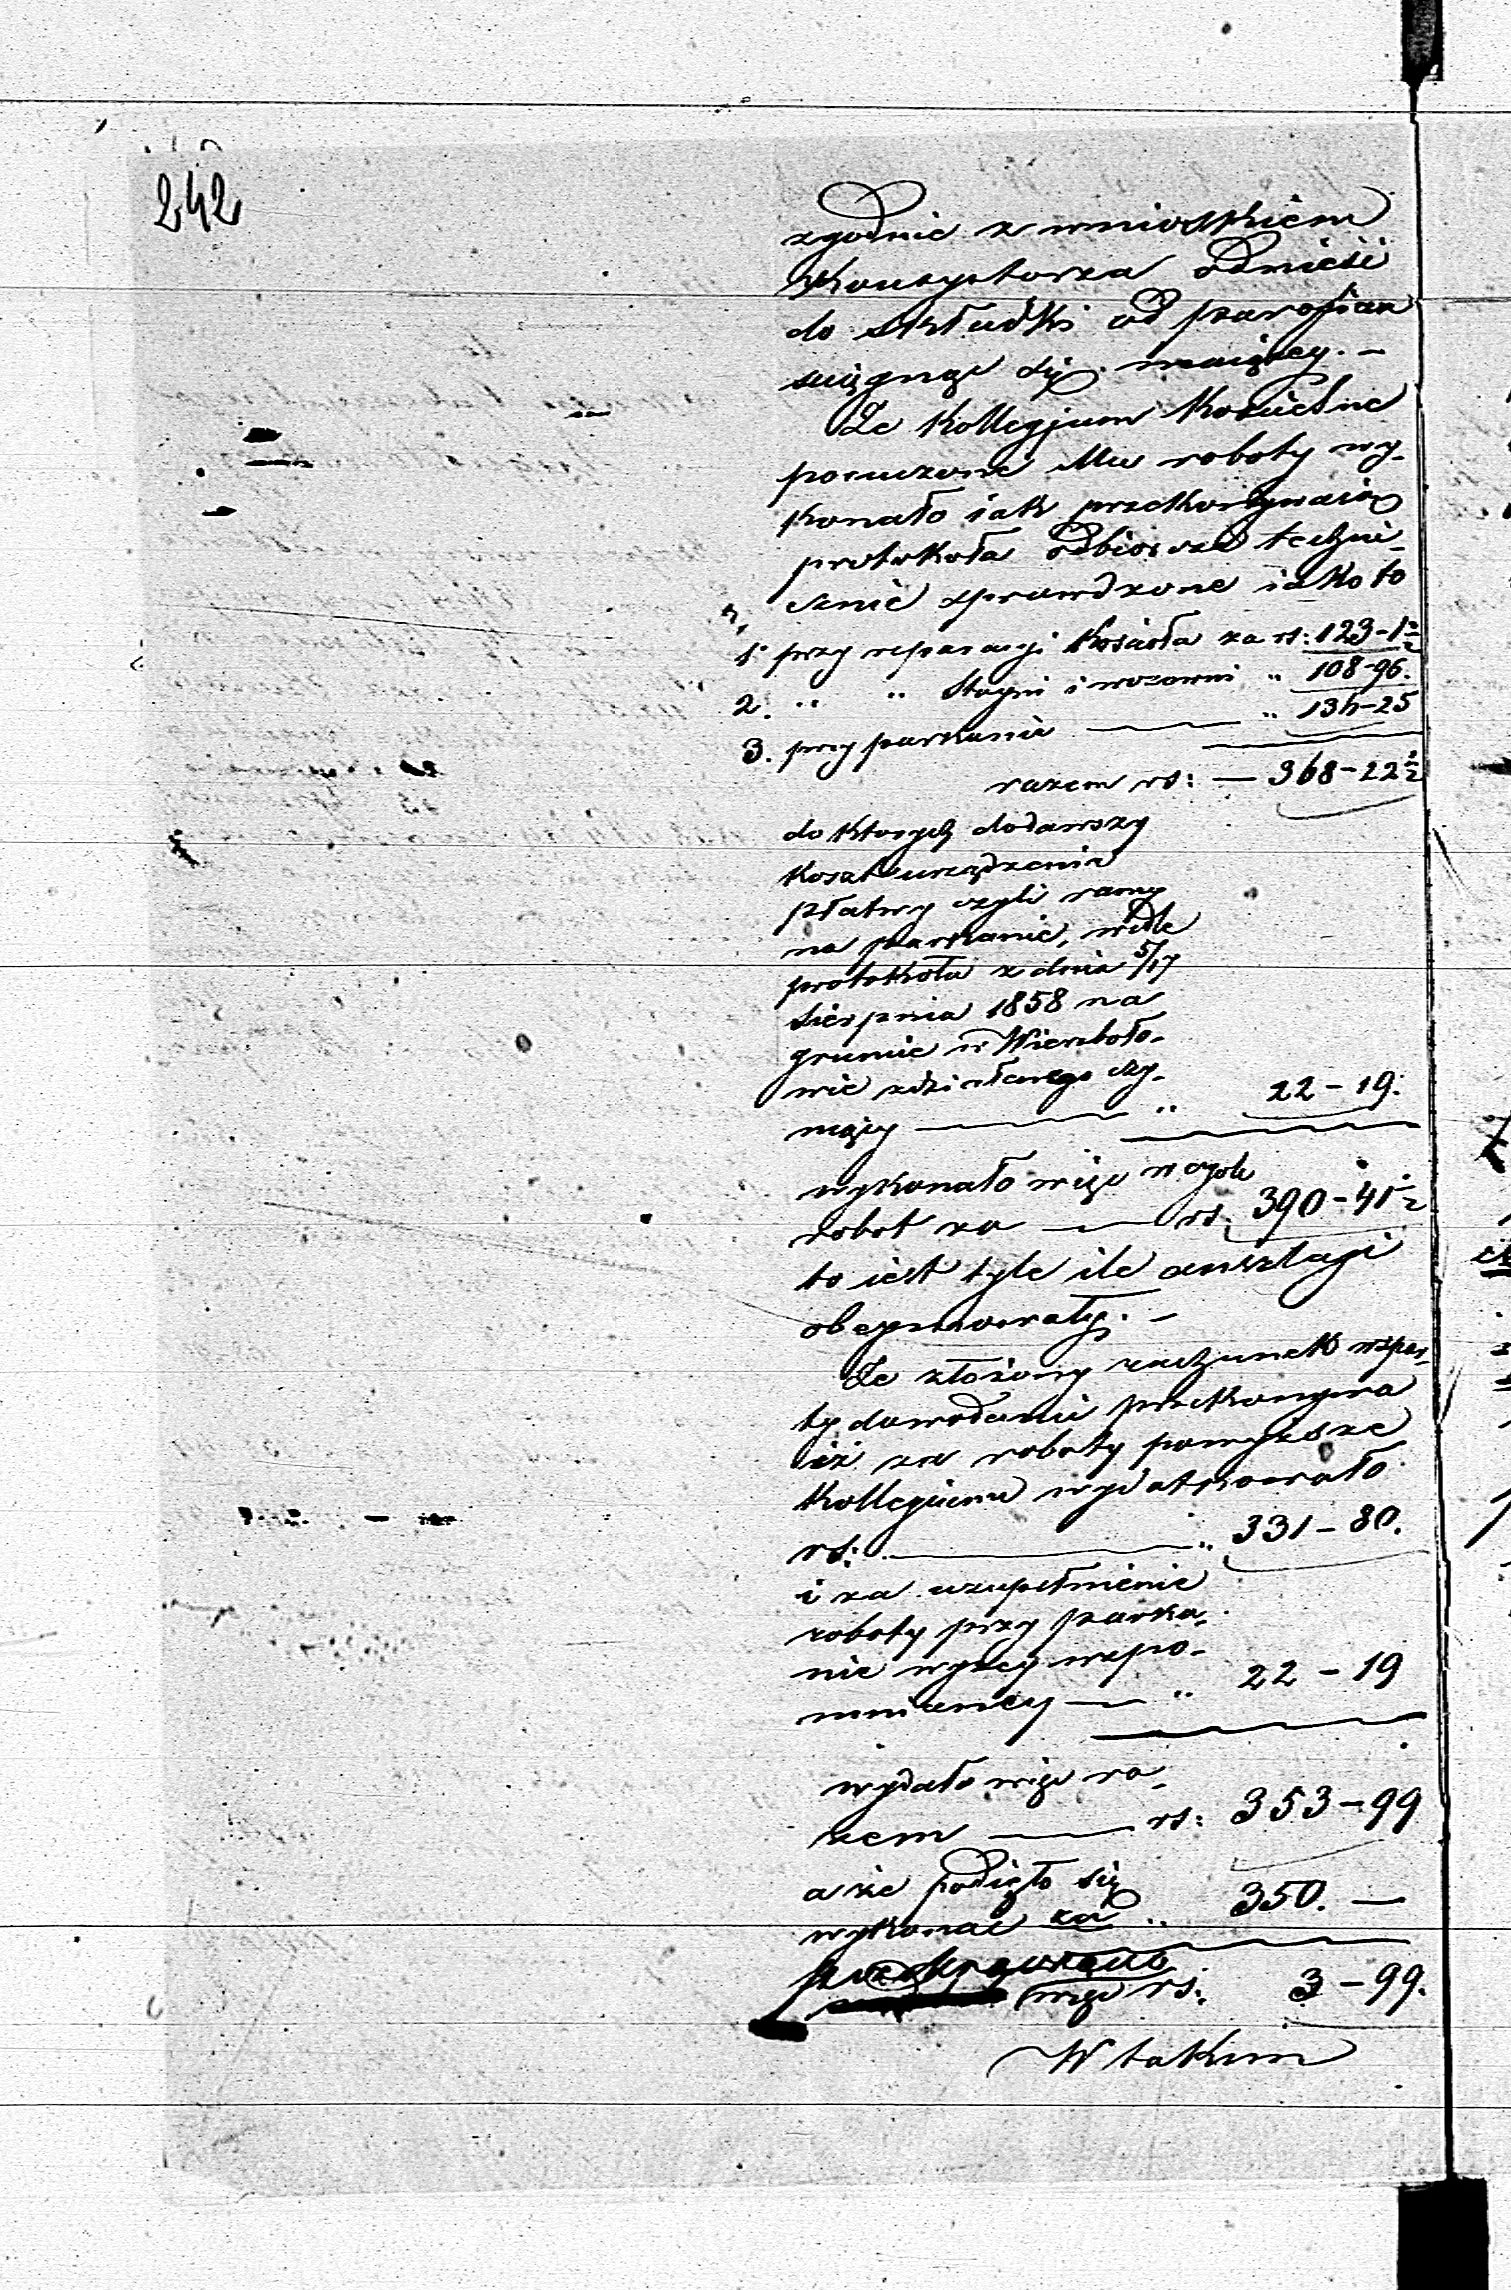 242
zgodnie z wnioskiem
Konsystorza odnieść
do składki od parafian
ściągnąć się maiącey. –
Że Kollegjum Kościelne
poruczone Mu roboty wy-
konało iak przekonywaią
protokoła odbiorcze techni-
cznie sprawdzone iako to
1. przy reparacyi Kościoła za rs: 123–1½
2. " " Stayni i wozowni " 108–96.
3. przy parkanie — " 136–25
razem rs: — 368–22½
do których dodawszy
koszt urządzenia
płatwy czyli ramy
na parkanie, wedle
protokołu z dnia 5/17
Sierpnia 1858 na
gruncie w Wierzboło-
wie zdziałanego czy-
niący — " 22–19.
wykonało więc w ogóle
robot za — rs: 390–41½
to iest tyle ile anszlagi
obeymowały. –
Że złożony rachunek wspar-
ty dowodami przekonywa
iż za roboty powyższe
Kollegium wydatkowało
rs: — " 331–80.
i za uzupełnienie
roboty przy parka-
nie wyżey wspo-
mnianey — " 22–19
wydało więc ra-
zem — rs: 353–99
a że podięło się
wykonać za " 350. —
więc rs: 3–99.
W takim